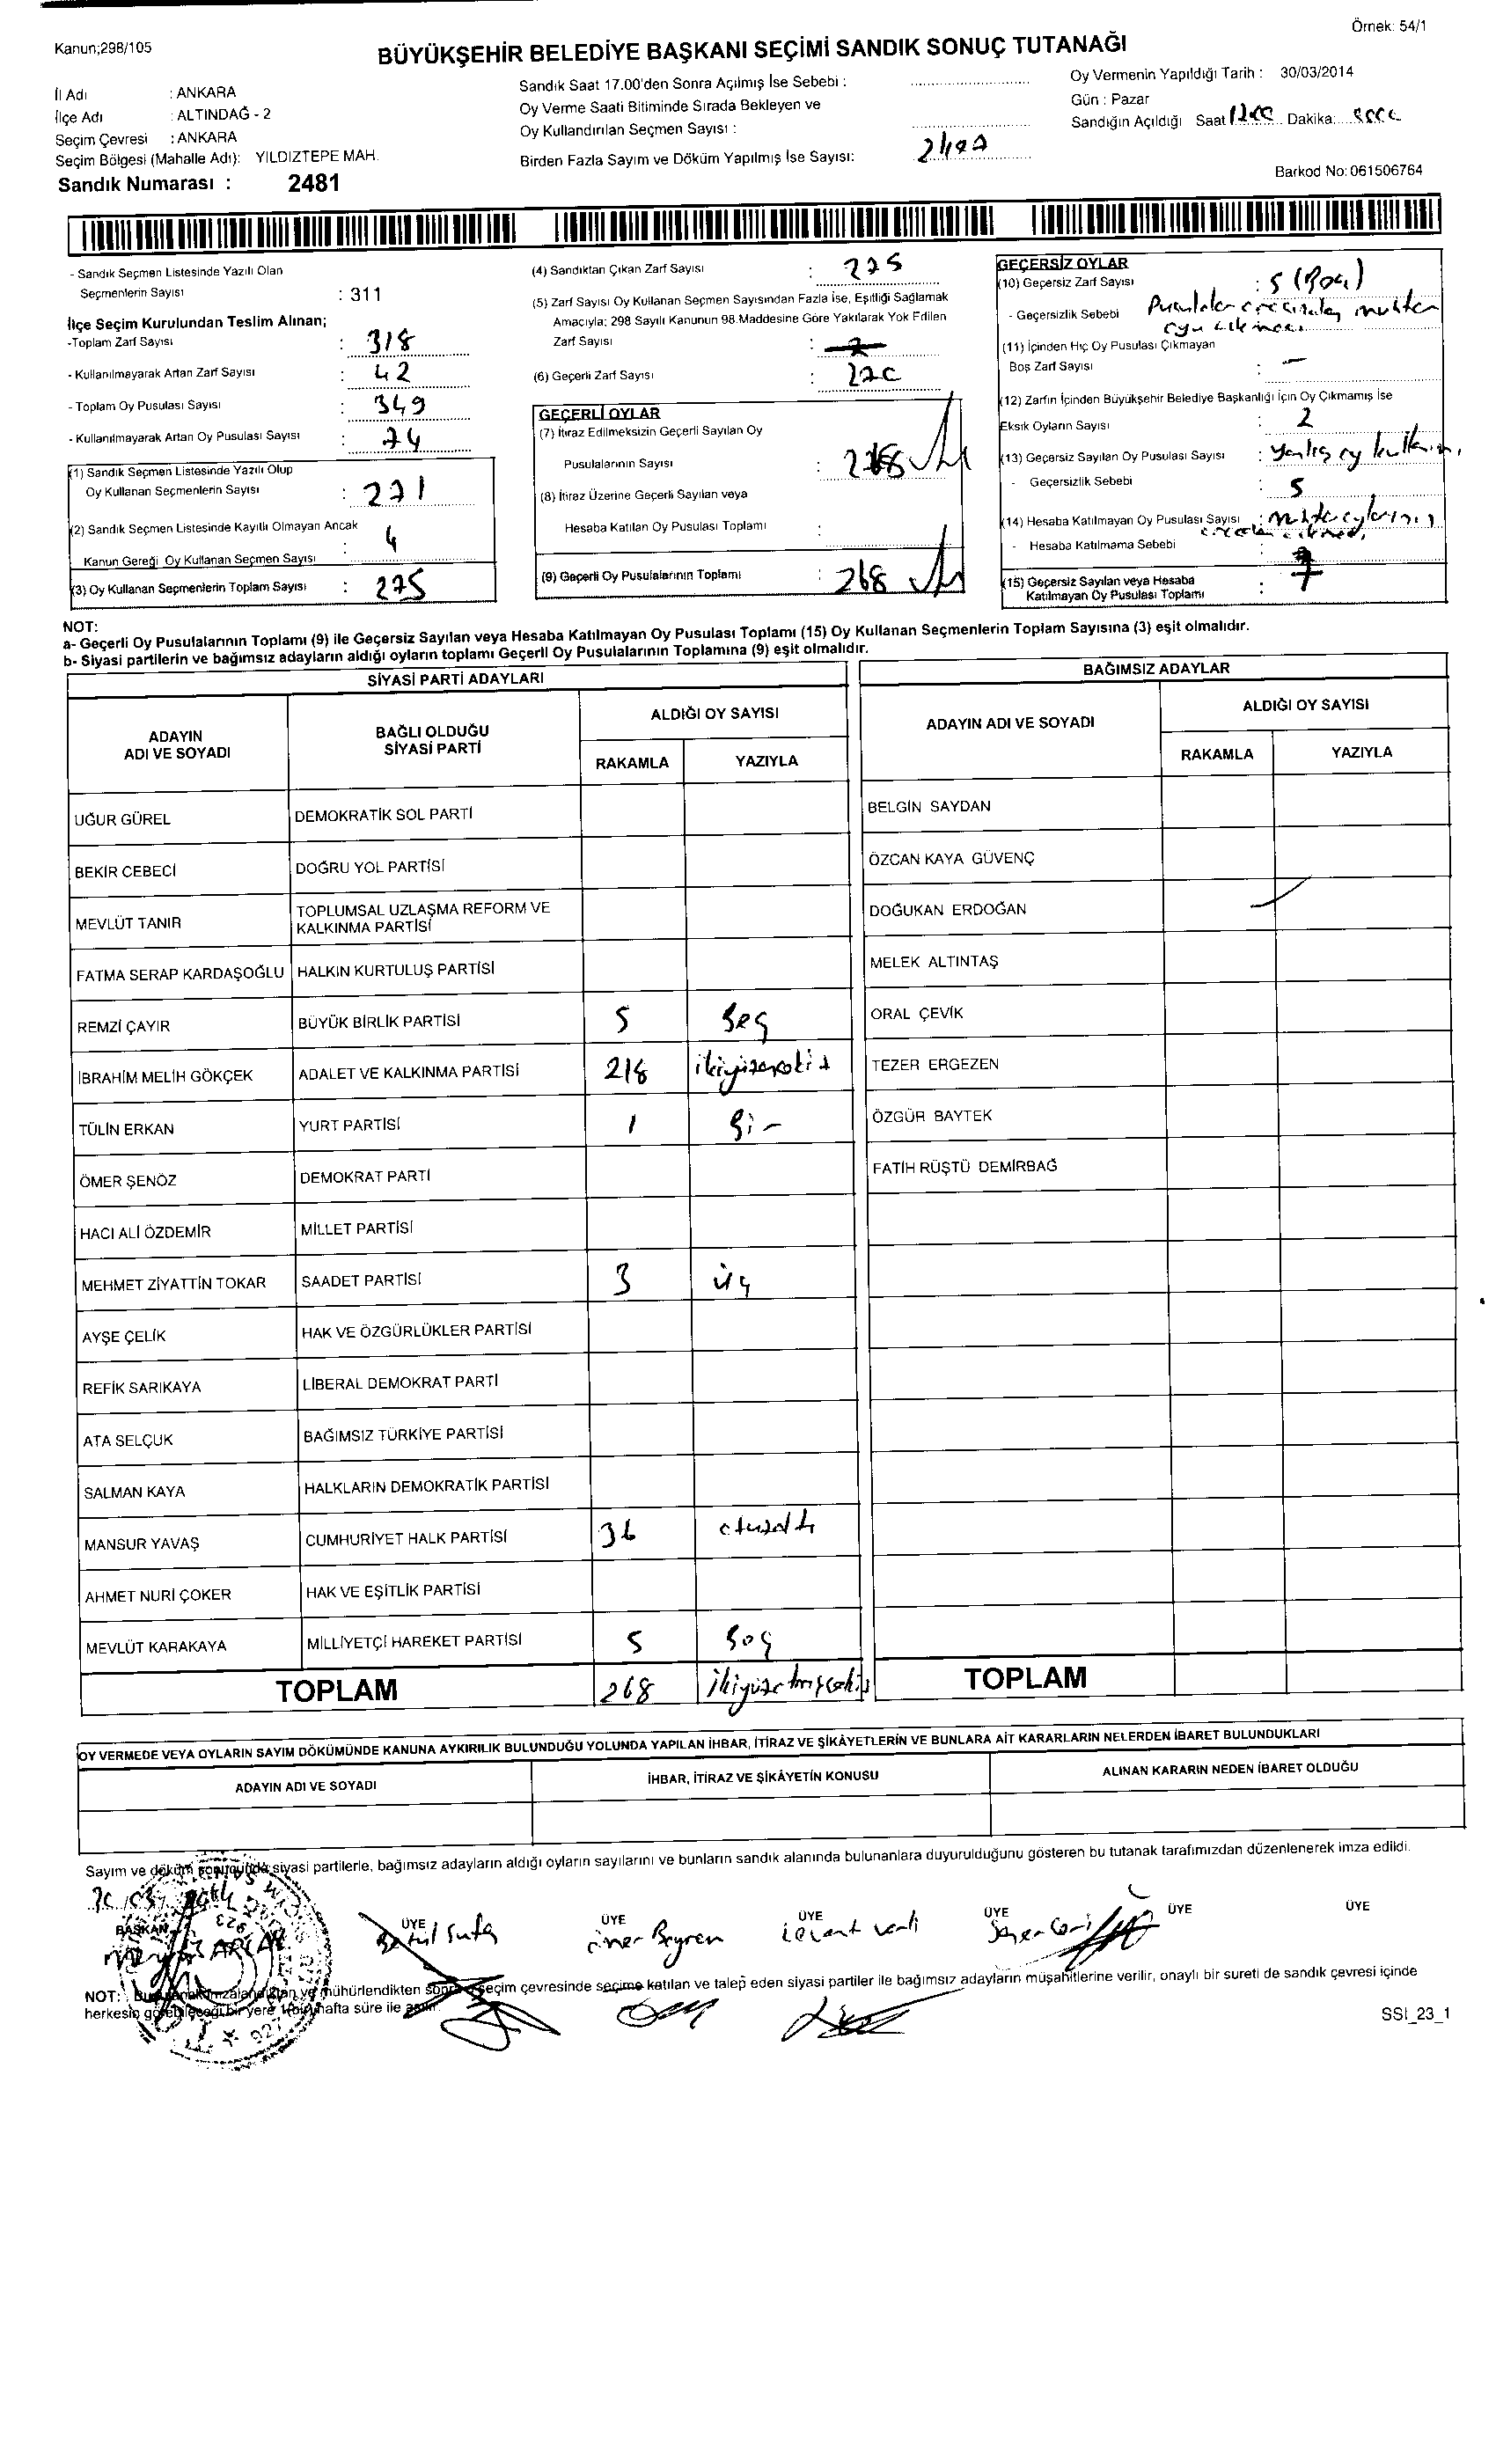 Örnek: 54/1
Kanun;298/105
BÜYÜKŞEHİR BELEDİYE BAŞKANI SEÇİMİ SANDIK SONUÇ TUTANAĞI
İl Adı : ANKARA
İlçe Adı : ALTINDAĞ - 2
Seçim Çevresi : ANKARA
Seçim Bölgesi (Mahalle Adı): YILDIZTEPE MAH.
Sandık Numarası : 2481
Sandık Saat 17.00'den Sonra Açılmış İse Sebebi :
Oy Verme Saati Bitiminde Sırada Bekleyen ve
Oy Kullandırılan Seçmen Sayısı :
Birden Fazla Sayım ve Döküm Yapılmış İse Sayısı:
Oy Vermenin Yapıldığı Tarih : 30/03/2014
Gün : Pazar
Sandığın Açıldığı Saat Dakika:
Barkod No: 061506764
- Sandık Seçmen Listesinde Yazılı Olan
Seçmenlerin Sayısı : 311
İlçe Seçim Kurulundan Teslim Alınan;
-Toplam Zarf Sayısı : 318
- Kullanılmayarak Artan Zarf Sayısı : 42
- Toplam Oy Pusulası Sayısı : 349
- Kullanılmayarak Artan Oy Pusulası Sayısı : 74
(1) Sandık Seçmen Listesinde Yazılı Olup
Oy Kullanan Seçmenlerin Sayısı : 271
(2) Sandık Seçmen Listesinde Kayıtlı Olmayan Ancak
Kanun Gereği Oy Kullanan Seçmen Sayısı : 4
(3) Oy Kullanan Seçmenlerin Toplam Sayısı : 275
(4) Sandıktan Çıkan Zarf Sayısı : 275
(5) Zarf Sayısı Oy Kullanan Seçmen Sayısından Fazla İse, Eşitliği Sağlamak
Amacıyla; 298 Sayılı Kanunun 98.Maddesine Göre Yakılarak Yok Edilen
Zarf Sayısı :
(6) Geçerli Zarf Sayısı : 270
GEÇERLİ OYLAR
(7) İtiraz Edilmeksizin Geçerli Sayılan Oy
Pusulalarının Sayısı : 268
(8) İtiraz Üzerine Geçerli Sayılan veya
Hesaba Katılan Oy Pusulası Toplamı :
(9) Geçerli Oy Pusulalarının Toplamı : 268
GEÇERSİZ OYLAR
(10) Geçersiz Zarf Sayısı : 5
- Geçersizlik Sebebi
(11) İçinden Hiç Oy Pusulası Çıkmayan
Boş Zarf Sayısı : —
(12) Zarfın İçinden Büyükşehir Belediye Başkanlığı İçin Oy Çıkmamış İse
Eksik Oyların Sayısı : 2
(13) Geçersiz Sayılan Oy Pusulası Sayısı : yanlış oy
- Geçersizlik Sebebi : 5
(14) Hesaba Katılmayan Oy Pusulası Sayısı :
- Hesaba Katılmama Sebebi :
(15) Geçersiz Sayılan veya Hesaba
Katılmayan Oy Pusulası Toplamı : 7
NOT:
a- Geçerli Oy Pusulalarının Toplamı (9) ile Geçersiz Sayılan veya Hesaba Katılmayan Oy Pusulası Toplamı (15) Oy Kullanan Seçmenlerin Toplam Sayısına (3) eşit olmalıdır.
b- Siyasi partilerin ve bağımsız adayların aldığı oyların toplamı Geçerli Oy Pusulalarının Toplamına (9) eşit olmalıdır.
SİYASİ PARTİ ADAYLARI
ADAYIN
ADI VE SOYADI
BAĞLI OLDUĞU
SİYASİ PARTİ
ALDIĞI OY SAYISI
RAKAMLA YAZIYLA
UĞUR GÜREL DEMOKRATİK SOL PARTİ
BEKİR CEBECİ DOĞRU YOL PARTİSİ
MEVLÜT TANIR TOPLUMSAL UZLAŞMA REFORM VE
KALKINMA PARTİSİ
FATMA SERAP KARDAŞOĞLU HALKIN KURTULUŞ PARTİSİ
REMZİ ÇAYIR BÜYÜK BİRLİK PARTİSİ 5 Beş
İBRAHİM MELİH GÖKÇEK ADALET VE KALKINMA PARTİSİ 218
TÜLİN ERKAN YURT PARTİSİ 1 Bir
ÖMER ŞENÖZ DEMOKRAT PARTİ
HACI ALİ ÖZDEMİR MİLLET PARTİSİ
MEHMET ZİYATTİN TOKAR SAADET PARTİSİ 3 üç
AYŞE ÇELİK HAK VE ÖZGÜRLÜKLER PARTİSİ
REFİK SARIKAYA LİBERAL DEMOKRAT PARTİ
ATA SELÇUK BAĞIMSIZ TÜRKİYE PARTİSİ
SALMAN KAYA HALKLARIN DEMOKRATİK PARTİSİ
MANSUR YAVAŞ CUMHURİYET HALK PARTİSİ 36 otuzaltı
AHMET NURİ ÇOKER HAK VE EŞİTLİK PARTİSİ
MEVLÜT KARAKAYA MİLLİYETÇİ HAREKET PARTİSİ 5 Beş
TOPLAM 268
BAĞIMSIZ ADAYLAR
ADAYIN ADI VE SOYADI
ALDIĞI OY SAYISI
RAKAMLA YAZIYLA
BELGİN SAYDAN
ÖZCAN KAYA GÜVENÇ
DOĞUKAN ERDOĞAN
MELEK ALTINTAŞ
ORAL ÇEVİK
TEZER ERGEZEN
ÖZGÜR BAYTEK
FATİH RÜŞTÜ DEMİRBAĞ
TOPLAM
OY VERMEDE VEYA OYLARIN SAYIM DÖKÜMÜNDE KANUNA AYKIRILIK BULUNDUĞU YOLUNDA YAPILAN İHBAR, İTİRAZ VE ŞİKÂYETLERİN VE BUNLARA AİT KARARLARIN NELERDEN İBARET BULUNDUKLARI
ADAYIN ADI VE SOYADI İHBAR, İTİRAZ VE ŞİKÂYETİN KONUSU ALINAN KARARIN NEDEN İBARET OLDUĞU
Sayım ve döküm sonucunda siyasi partilerle, bağımsız adayların aldığı oyların sayılarını ve bunların sandık alanında bulunanlara duyurulduğunu gösteren bu tutanak tarafımızdan düzenlenerek imza edildi.
BAŞKAN ÜYE ÜYE ÜYE ÜYE ÜYE ÜYE
NOT: mühürlendikten sonra seçim çevresinde seçime katılan ve talep eden siyasi partiler ile bağımsız adayların müşahitlerine verilir, onaylı bir sureti de sandık çevresi içinde
herkesin göreb‌ileceği bir yere hafta süre ile asılır.
SSİ_23_1